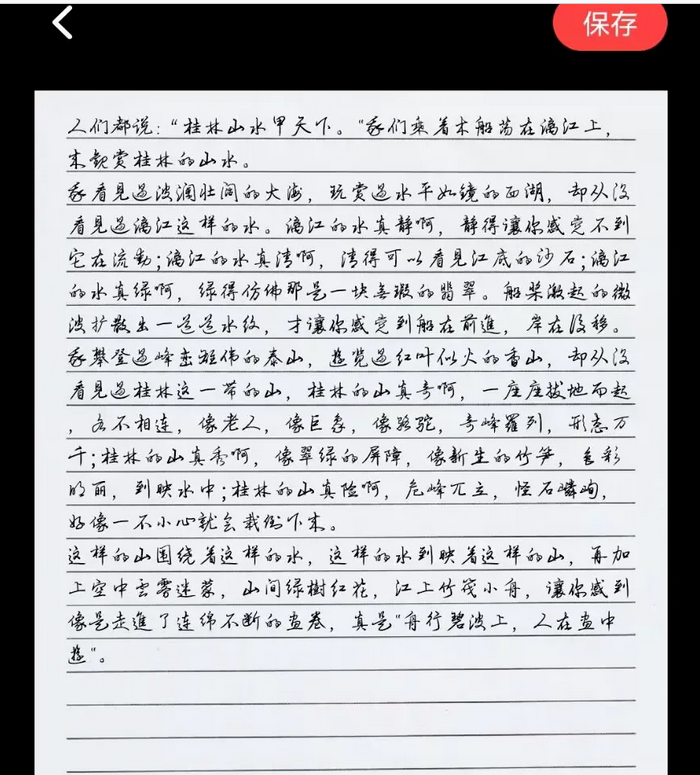 保存
人们都说：“桂林山水甲天下。”我们乘着木船荡在漓江上，
来观赏桂林的山水。
我看見过波澜壮阔的大海，玩赏过水平如镜的西湖，却从没
看見过漓江这样的水。漓江的水真静啊，静得讓你感觉不到
它在流動；漓江的水真清啊，清得可以看見江底的沙石；漓江
的水真绿啊，绿得仿佛那是一块無瑕的翡翠。船桨激起的微
波扩散出一道道水纹，才讓你感觉到船在前進，岸在後移。
我攀登过峰峦雄伟的泰山，遊览过红叶似火的香山，却从没
看見过桂林这一带的山，桂林的山真奇啊，一座座拔地而起
，各不相连，像老人，像巨象，像骆驼，奇峰羅列，形态万
千；桂林的山真秀啊，像翠绿的屏障，像新生的竹笋，色彩
明丽，到映水中；桂林的山真险啊，危峰兀立，怪石嶙峋，
好像一不小心就会栽倒下来。
这样的山围绕着这样的水，这样的水到映着这样的山，再加
上空中雲雾迷蒙，山间绿樹红花，江上竹筏小舟，讓你感到
像是走進了连绵不断的画卷，真是“舟行碧波上，人在画中
遊”。